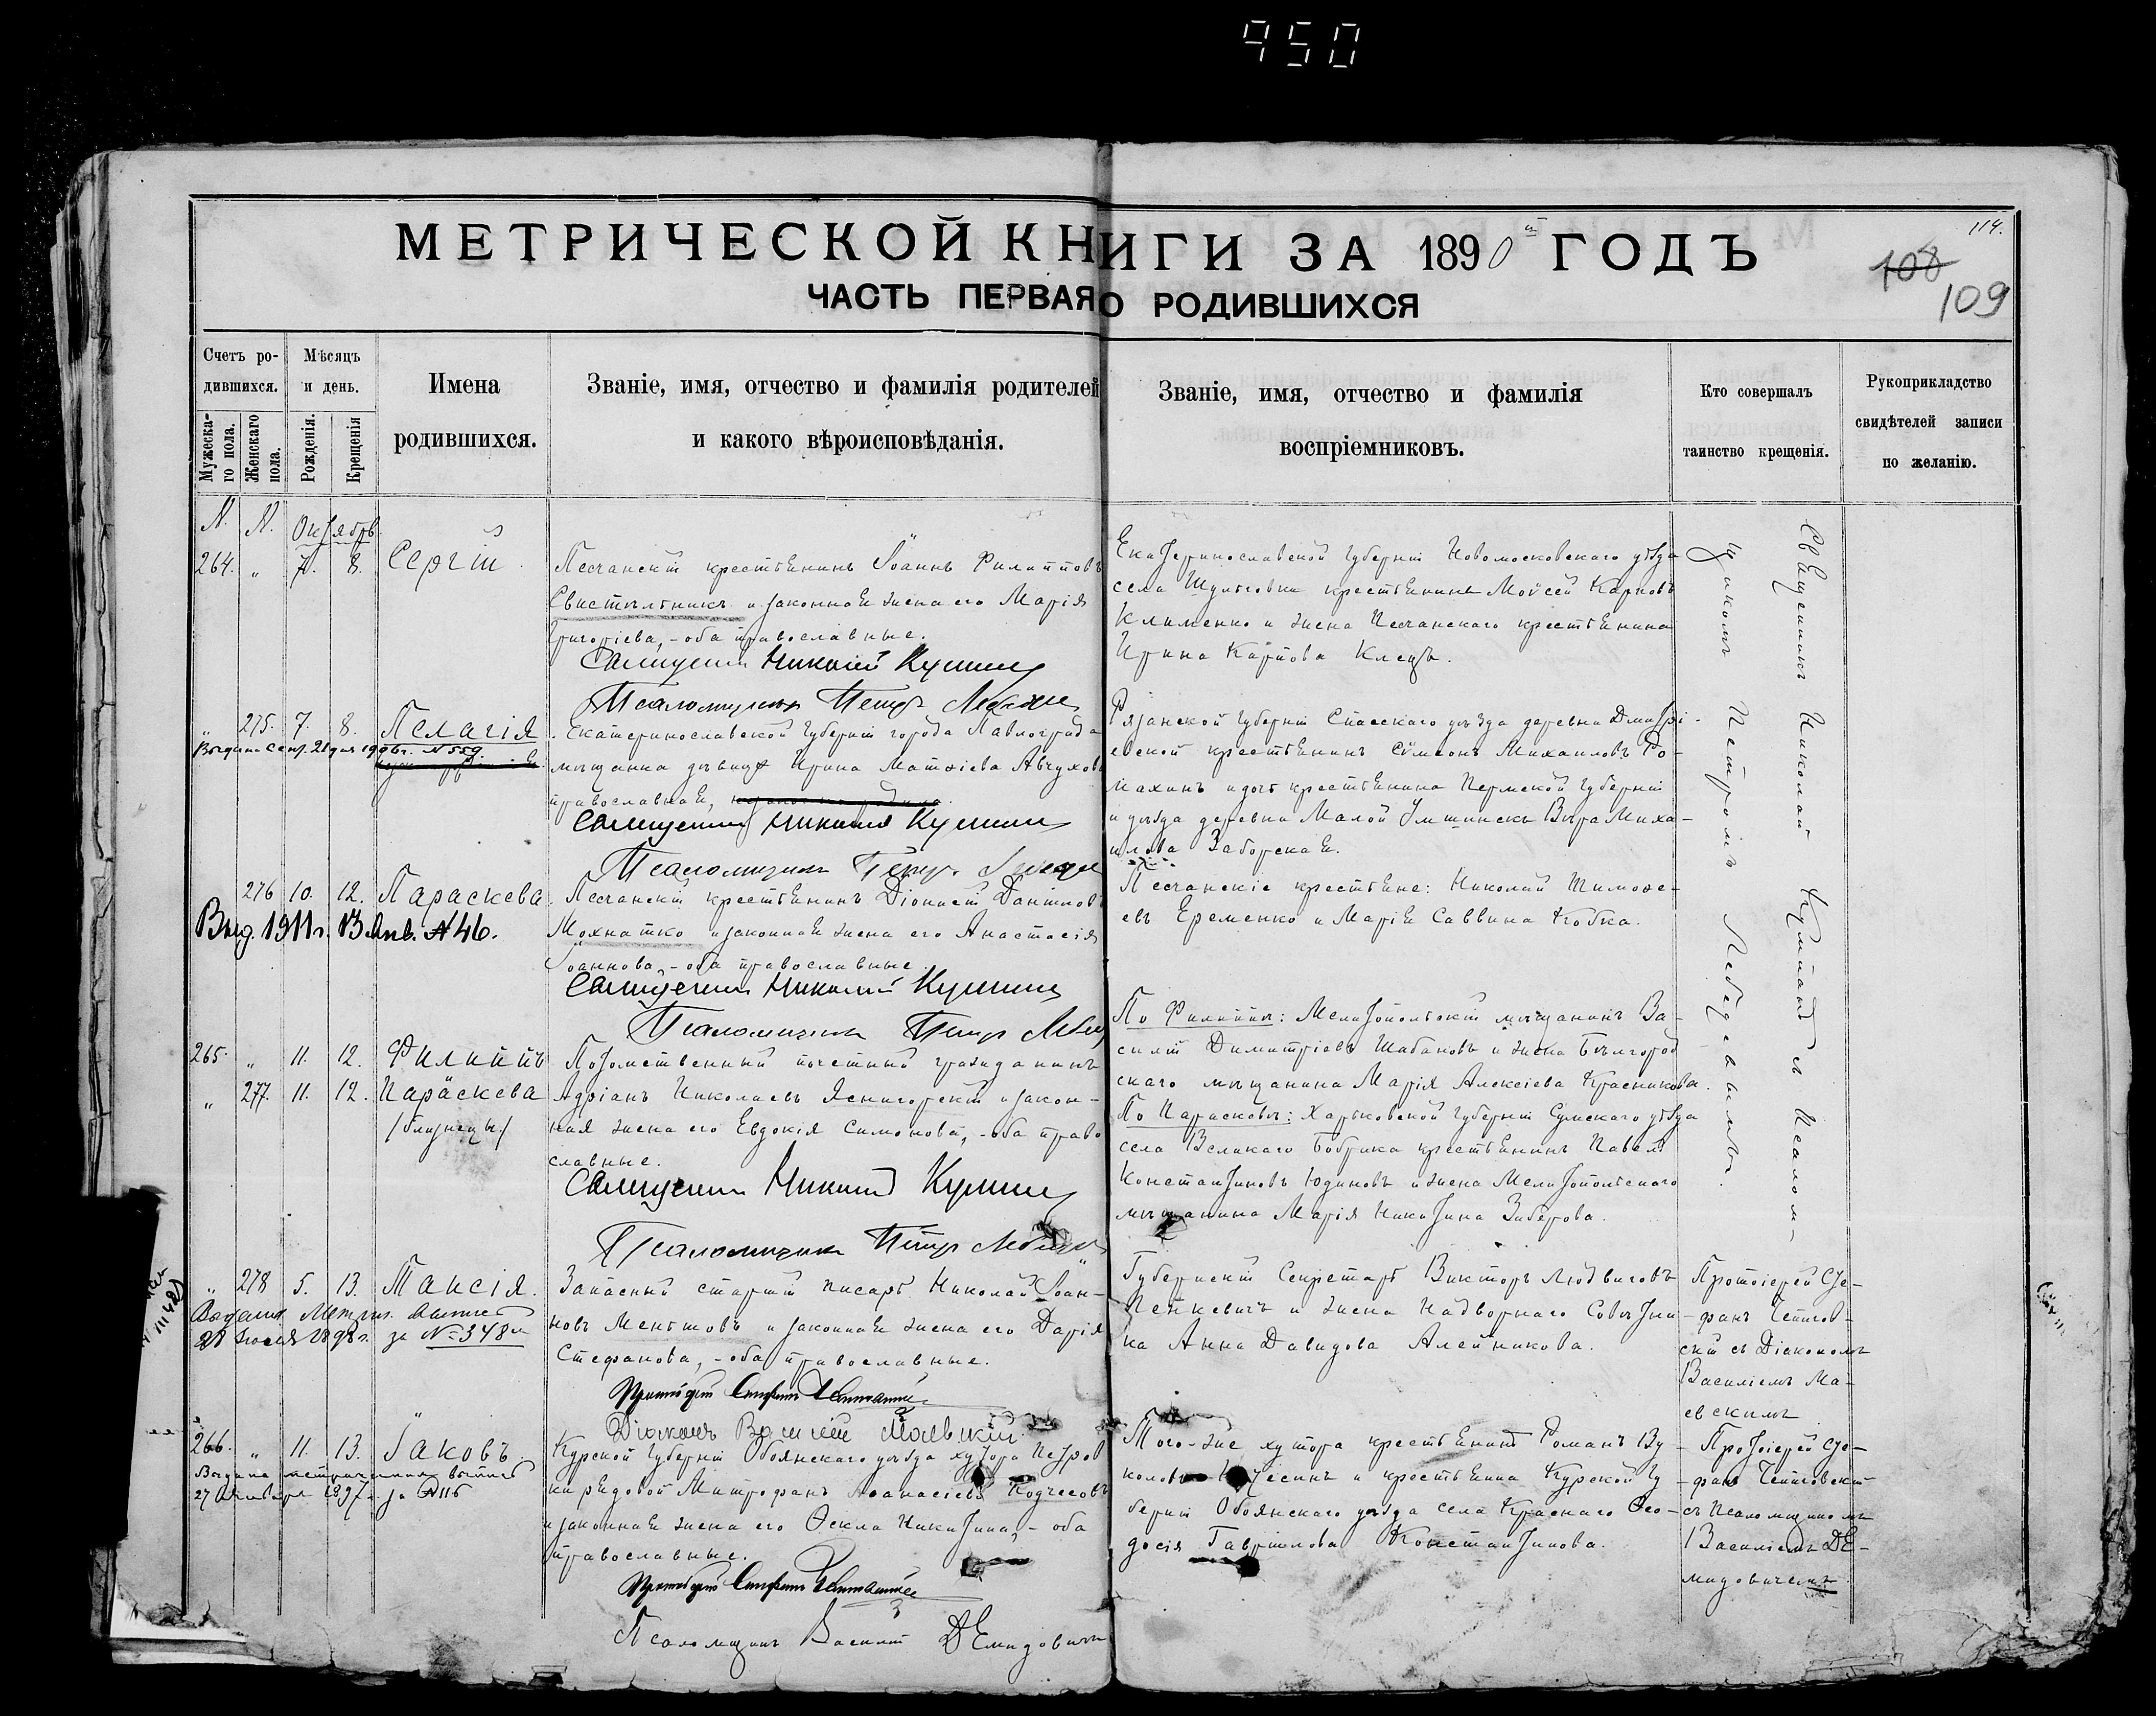 950
МЕТРИЧЕСКОЙ КНИГИ ЗА 1890й ГОДЪ
114.
ЧАСТЬ ПЕРВАЯ О РОДИВШИХСЯ
108
109
Счетъ ро-
дившихся.
Мужеска-
го пола.
Женскаго
пола.
Мѣсяцъ
и день.
Рожденія.
Крещенія
Имена
родившихся.
Званіе, имя, отчество и фамилія родителей
и какого вѣроисповѣданія.
Званіе, имя, отчество и фамилія
воспріемниковъ.
Кто совершалъ
таинство крещенія.
Рукоприкладство
свидѣтелей записи
по желанію.
N. N. Октябрь
264. " 7. 8. Сергій.
Песчанскій крестьянинъ Іоаннъ Филипповъ
и законная жена его Марія
Григоріева, - оба православные.
Священникъ Николай
Псаломщикъ Петръ
Екатеринославской губерніи Новомосковскаго уѣзда
села крестьянинъ Моѵсей Карповъ
Клименко и жена Песчанскаго крестьянина
Ирина Карпова
Священникъ Николай съ Псалом-
щикомъ Петромъ Лебедевымъ.
" 275. 7. 8. Пелагія.
Выдана Сент. 21 дня 190 г. N 559
Екатеринославской губерніи города Павлограда
мѣщанка дѣвица Ирина Матѳіева
православная,
Священникъ Николай
Псаломщикъ Петръ
Рязанской губерніи Спасскаго уѣзда деревни Дмитрі-
евской крестьянинъ Сѵмеонъ Михаиловъ Ро-
махинъ и дочь крестьянина Пермской губерніи
и уѣзда деревни Малой Вѣра Миха-
илова Заборская.
276 10. 12. Параскева.
Выд. 1911 г. 13 Янв. N 46.
Песчанскій крестьянинъ Діонисій Даніиловъ
Мохнатко и законная жена его Анастасія
Іоаннова, - оба православные.
Священникъ Николай
Псаломщикъ Петръ
Песчанскіе крестьяне: Николай Тимоѳе-
евъ Еременко и Марія Саввина Кобка.
265. " 11. 12. Филиппъ
" 277. 11. 12. Параскева
/близнецы/
Потомственный почетный гражданинъ
Адріанъ Николаевъ Ясногорскій и закон-
ная жена его Евдокія Симонова, - оба право
славные.
Священникъ Николай
Псаломщикъ Петръ
По Филиппѣ: Мелитопольскій мѣщанинъ Ва-
силій Димитріевъ Шабановъ и жена Бѣлгород
скаго мѣщанина Марія Алексіева Красникова.
По Параскевѣ: Харьковской губерніи Сумскаго уѣзда
села Великаго Бобрика крестьянинъ Павелъ
Константиновъ Юдиновъ и жена Мелитопольскаго
мѣщанина Марія Никитина Зиберова.
" 278 5. 13. Таисія.
21 Іюля 1898 г. за N 348
Запасный старшій писарь Николай Іоан-
новъ и законная жена его Дарія
Стефанова, - оба православные.
Протоіерей Стефанъ
Діаконъ Василій Маевскій
Губернскій Секретарь Викторъ Людвиговъ
Пенкевичъ и жена Надворнаго Совѣтни-
ка Анна Давидова Алейникова.
Протоіерей Сте-
фанъ
скій съ Діакономъ
Василіемъ Ма-
евскимъ
266. " 11. 13. Іаковъ.
Выдана метрическая выпись
27 Января 1897 г. за N 116
Курской губерніи Обоянскаго уѣзда хутора Петров
ки рядовой Митрофанъ Аѳанасіевъ
и законная жена его Ѳекла Никитина, - оба
православные.
Протоіерей Стефанъ
Псаломщикъ Василій Демидовичъ
Того-же хутора крестьянинъ Романъ Ву-
коловъ и крестьянка Курской гу
берніи Обоянскаго уѣзда села Краснаго Ѳео-
досія Гавріилова Константинова.
Протоіерей Сте-
фанъ
съ Псаломщикомъ
Василіемъ Де-
мидовичемъ